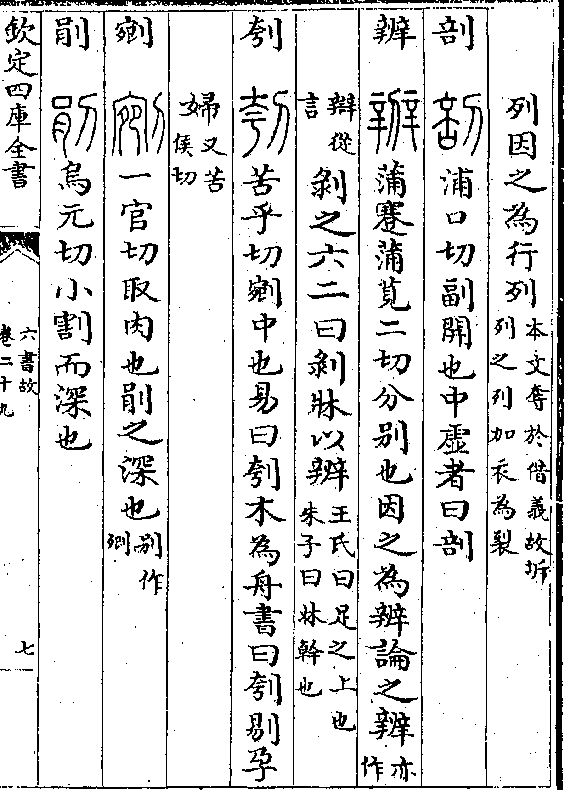 列因之為行列本文奪於借義故坼
列之列加衣為裂
剖 剖 浦口切副開也中虛者曰剖
辨 辨 蒲蹇蒲莧二切分别也因之為辨論之辨亦作
辯從言剝之六二曰剝牀以辨王氏曰足之上也
朱子曰牀幹也
刳 刳 苦乎切剜中也易曰刳木為舟書曰刳剔孕
婦又苦侯切
剜 剜 一官切取肉也剈之深也别作
剈 剈 烏元切小割而深也
欽定四庫全書
六書故
卷二十九
七